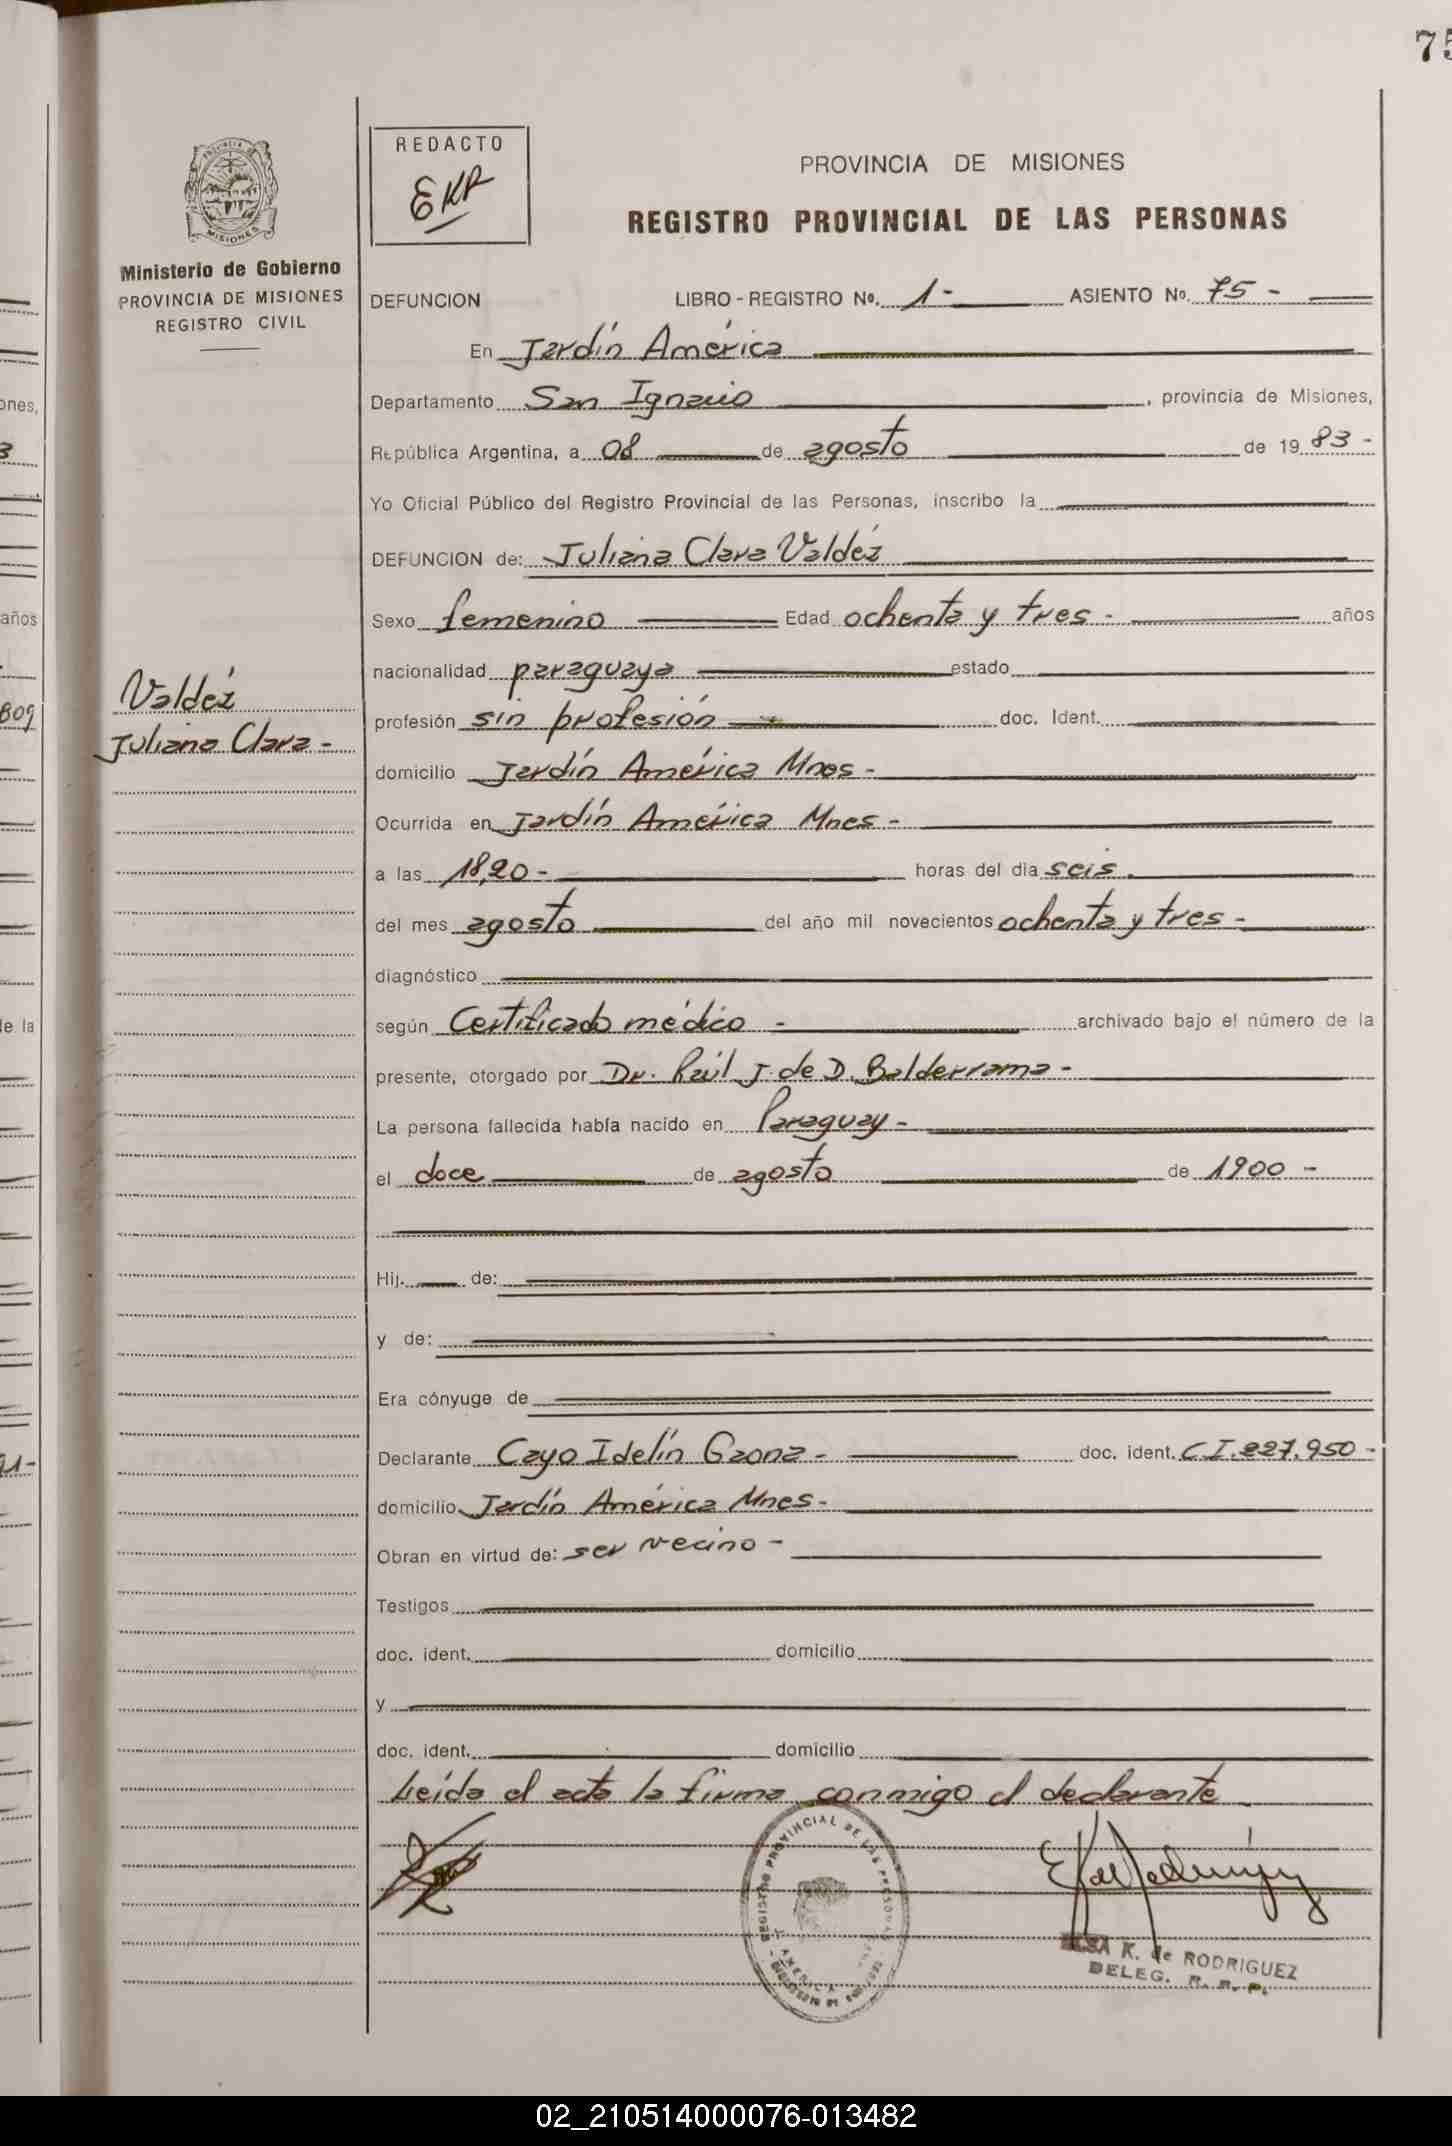 75
REDACTO
EKR
PROVINCIA DE MISIONES
REGISTRO PROVINCIAL DE LAS PERSONAS
Ministerio de Gobierno
PROVINCIA DE MISIONES
REGISTRO CIVIL
DEFUNCION LIBRO - REGISTRO Nº. 1- ASIENTO Nº. 75 -
En Jardín América
Departamento San Ignacio, provincia de Misiones,
República Argentina, a 08 de agosto de 1983 -
Yo Oficial Público del Registro Provincial de las Personas, inscribo la
DEFUNCION de: Juliana Clara Valdéz
Sexo femenino Edad ochenta y tres - años
nacionalidad paraguaya estado
Valdéz
Juliana Clara -
profesión sin profesión doc. Ident.
domicilio Jardín América Mnes -
Ocurrida en Jardín América Mnes -
a las 18,20 - horas del dia seis
del mes agosto del año mil novecientos ochenta y tres -
diagnóstico
según Certificado médico - archivado bajo el número de la
presente, otorgado por Dr. Raúl J. de D. Balderrama -
La persona fallecida había nacido en Paraguay -
el doce de agosto de 1900 -
Hij. de:
y de:
Era cónyuge de
Declarante Cayo Idelín Gaona - doc. ident. C.I. 227.950 -
domicilio Jardín América Mnes -
Obran en virtud de: ser vecino -
Testigos
doc. ident. domicilio
y
doc. ident. domicilio
Leída el acta la firma conmigo el declarante
REGISTRO PROVINCIAL DE LAS PERSONAS
AMERICA
K. de RODRIGUEZ
DELEG. R. R. P.
02_210514000076-013482